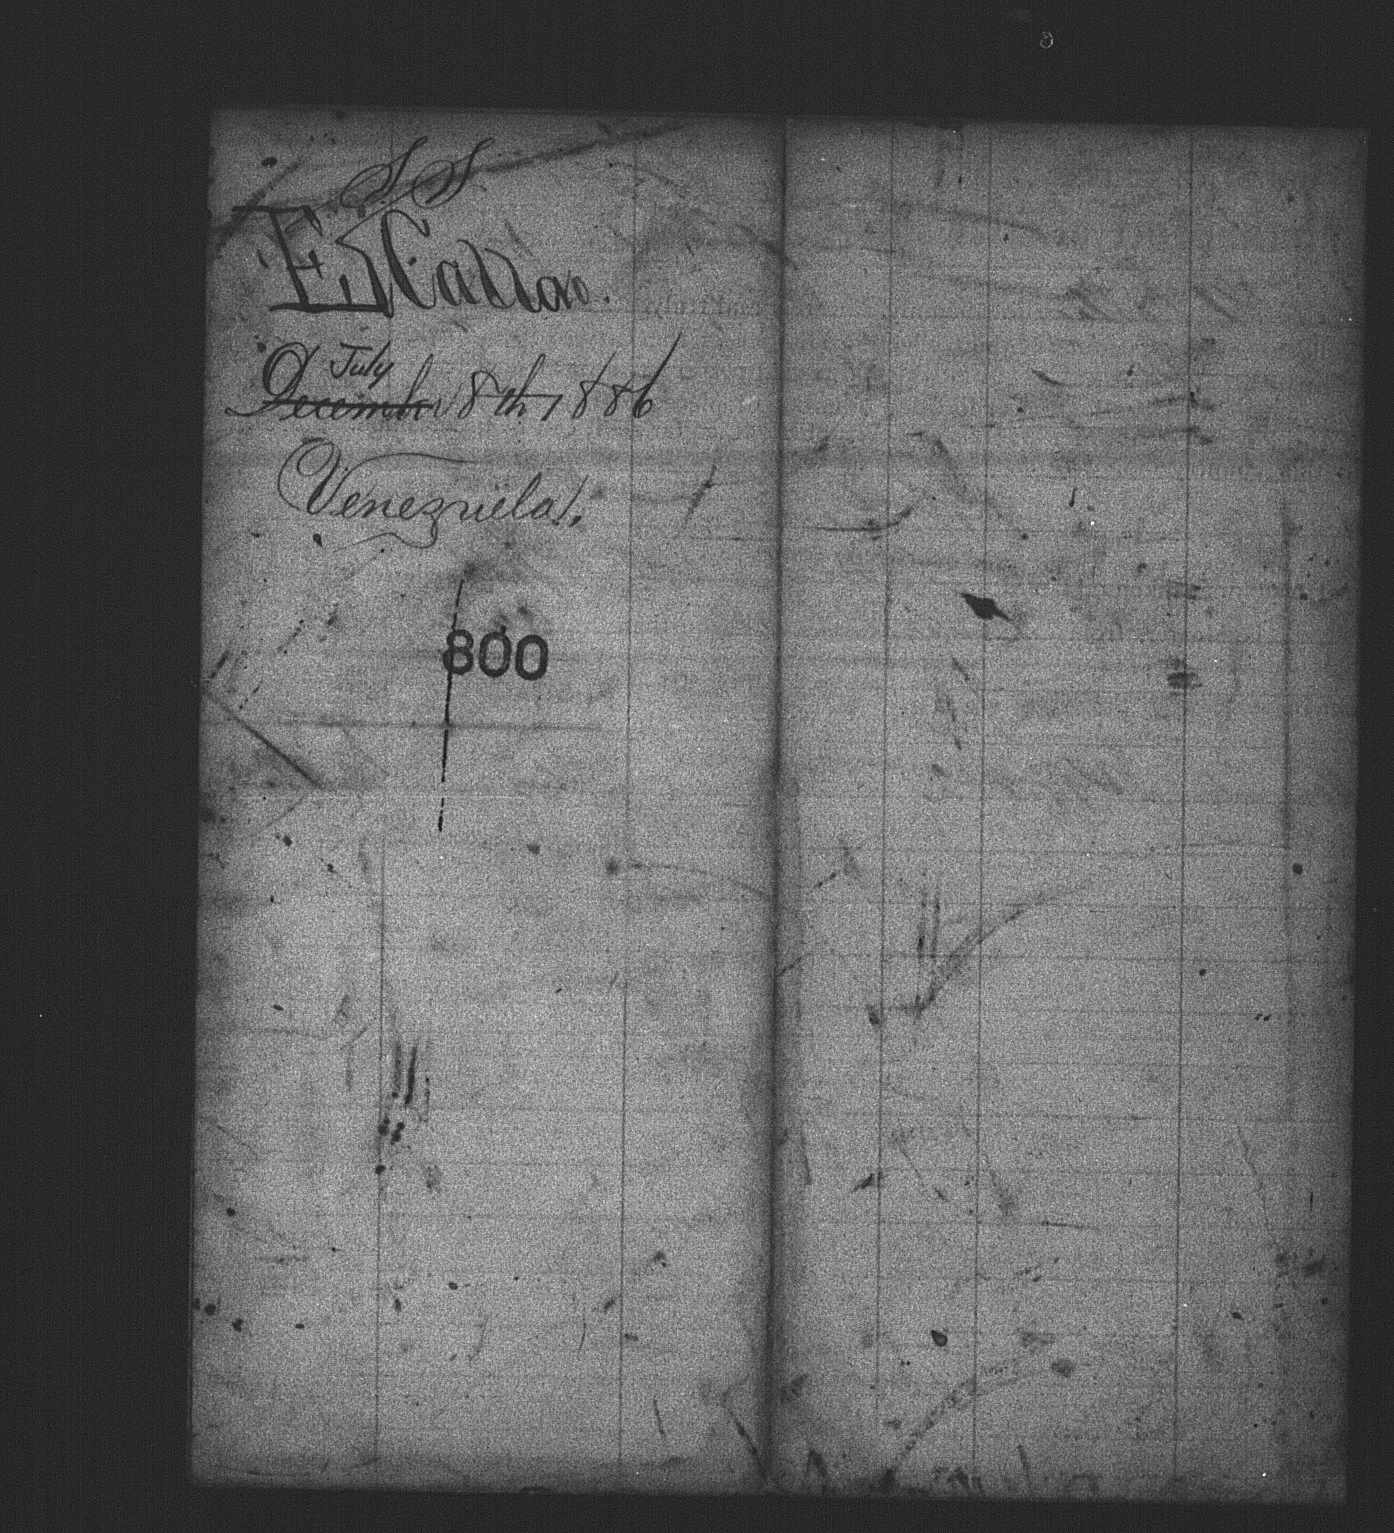 SS
El Callao.
July
~~December~~ 8th 1886
Venezuela.
800